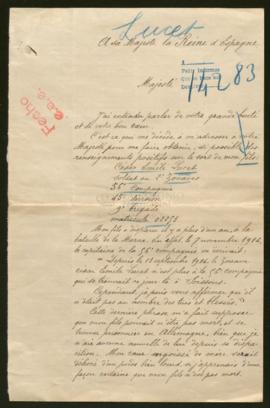 Lucet
A Sa Majesté la Reine d'Espagne
Fecho
83
Majesté
J'ai entendu parler de votre grande bonté
et de votre bon cœur.
C'est ce qui me décide à m'adresser à votre
Majesté pour me faire obtenir, si possible, des
renseignements positifs sur le sort de mon fils:
Émile Lucet
soldat au 2e Zouaves
56e Compagnie
45e division
9e brigade
matricule
Mon fils a disparu il y a plus d'un an, à la
bataille de la Marne. En effet, le 7 novembre 1914,
le capitaine de la 56e Compagnie m'écrivait:
"Depuis le 18 septembre 1914, le zouave
Émile Lucet n'est plus à la 56e compagnie
qui se trouvait ce jour là à Soissons.
Cependant, je puis vous affirmer qu'il
n'était pas au nombre des tués et blessés."
Cette dernière phrase m'a fait supposer
que mon fils pouvait n'être pas mort, et se
trouver prisonnier en Allemagne, bien que je
n'ai aucune nouvelle de lui depuis sa dispa-
rition. Mon cœur angoissé de mère serait
d'une
façon certaine que mon fils n'est pas mort.